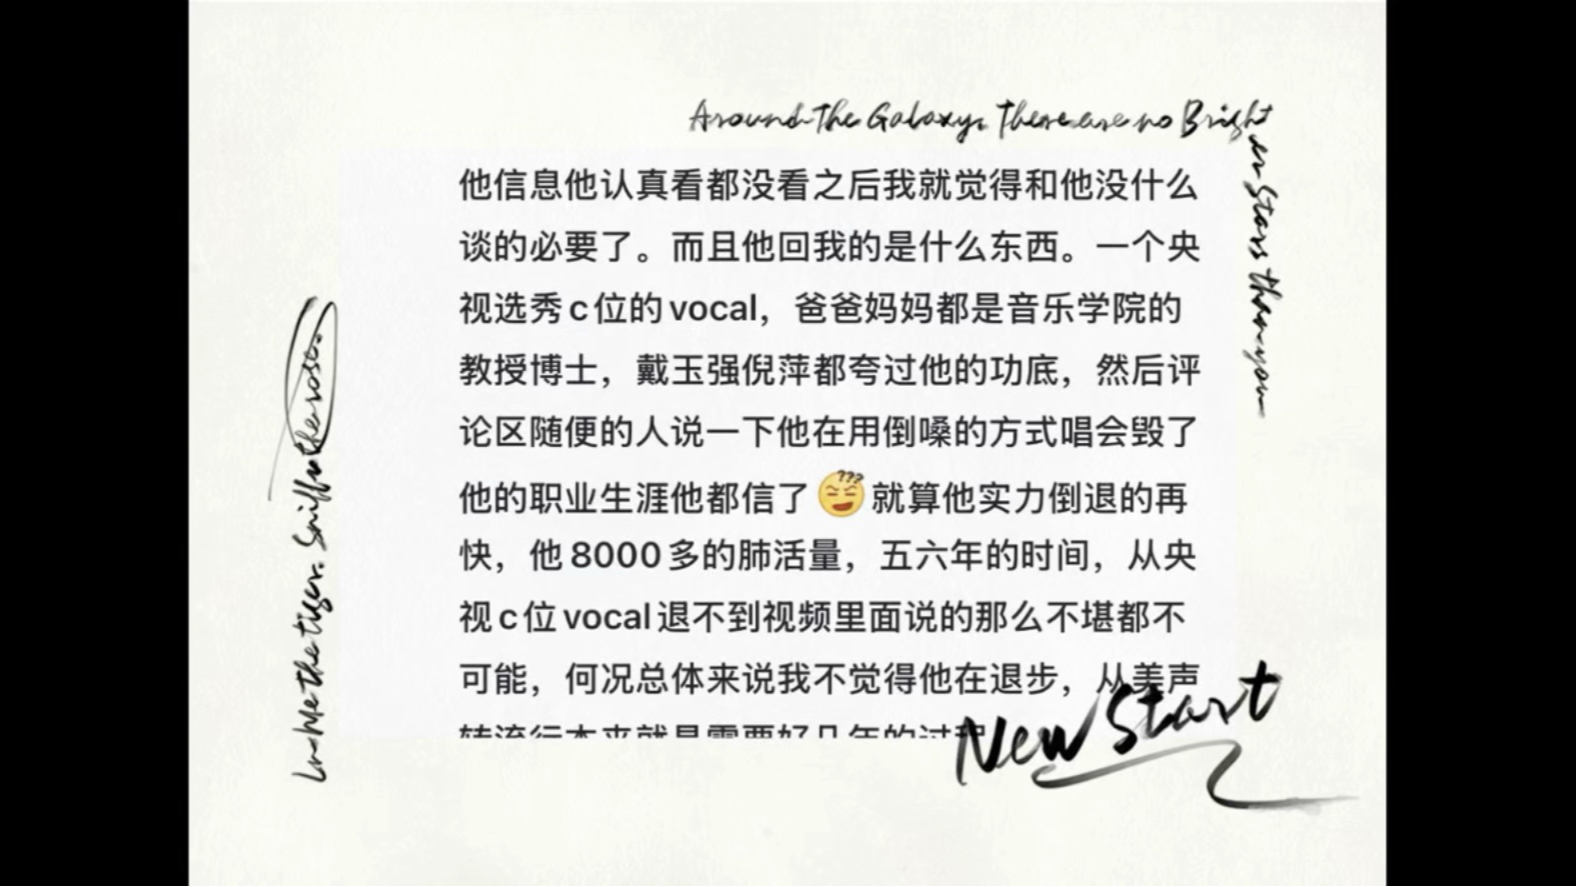 Around the Galaxy, There are no Bright
er Stars than you
他信息他认真看都没看之后我就觉得和他没什么
谈的必要了。而且他回我的是什么东西。一个央
视选秀c位的vocal，爸爸妈妈都是音乐学院的
教授博士，戴玉强倪萍都夸过他的功底，然后评
论区随便的人说一下他在用倒嗓的方式唱会毁了
他的职业生涯他都信了???就算他实力倒退的再
快，他8000多的肺活量，五六年的时间，从央
视c位vocal退不到视频里面说的那么不堪都不
可能，何况总体来说我不觉得他在退步，从美声
转流行本来就是需要好几年的过程
In Me the tiger. Sniffs the rose.
New Start